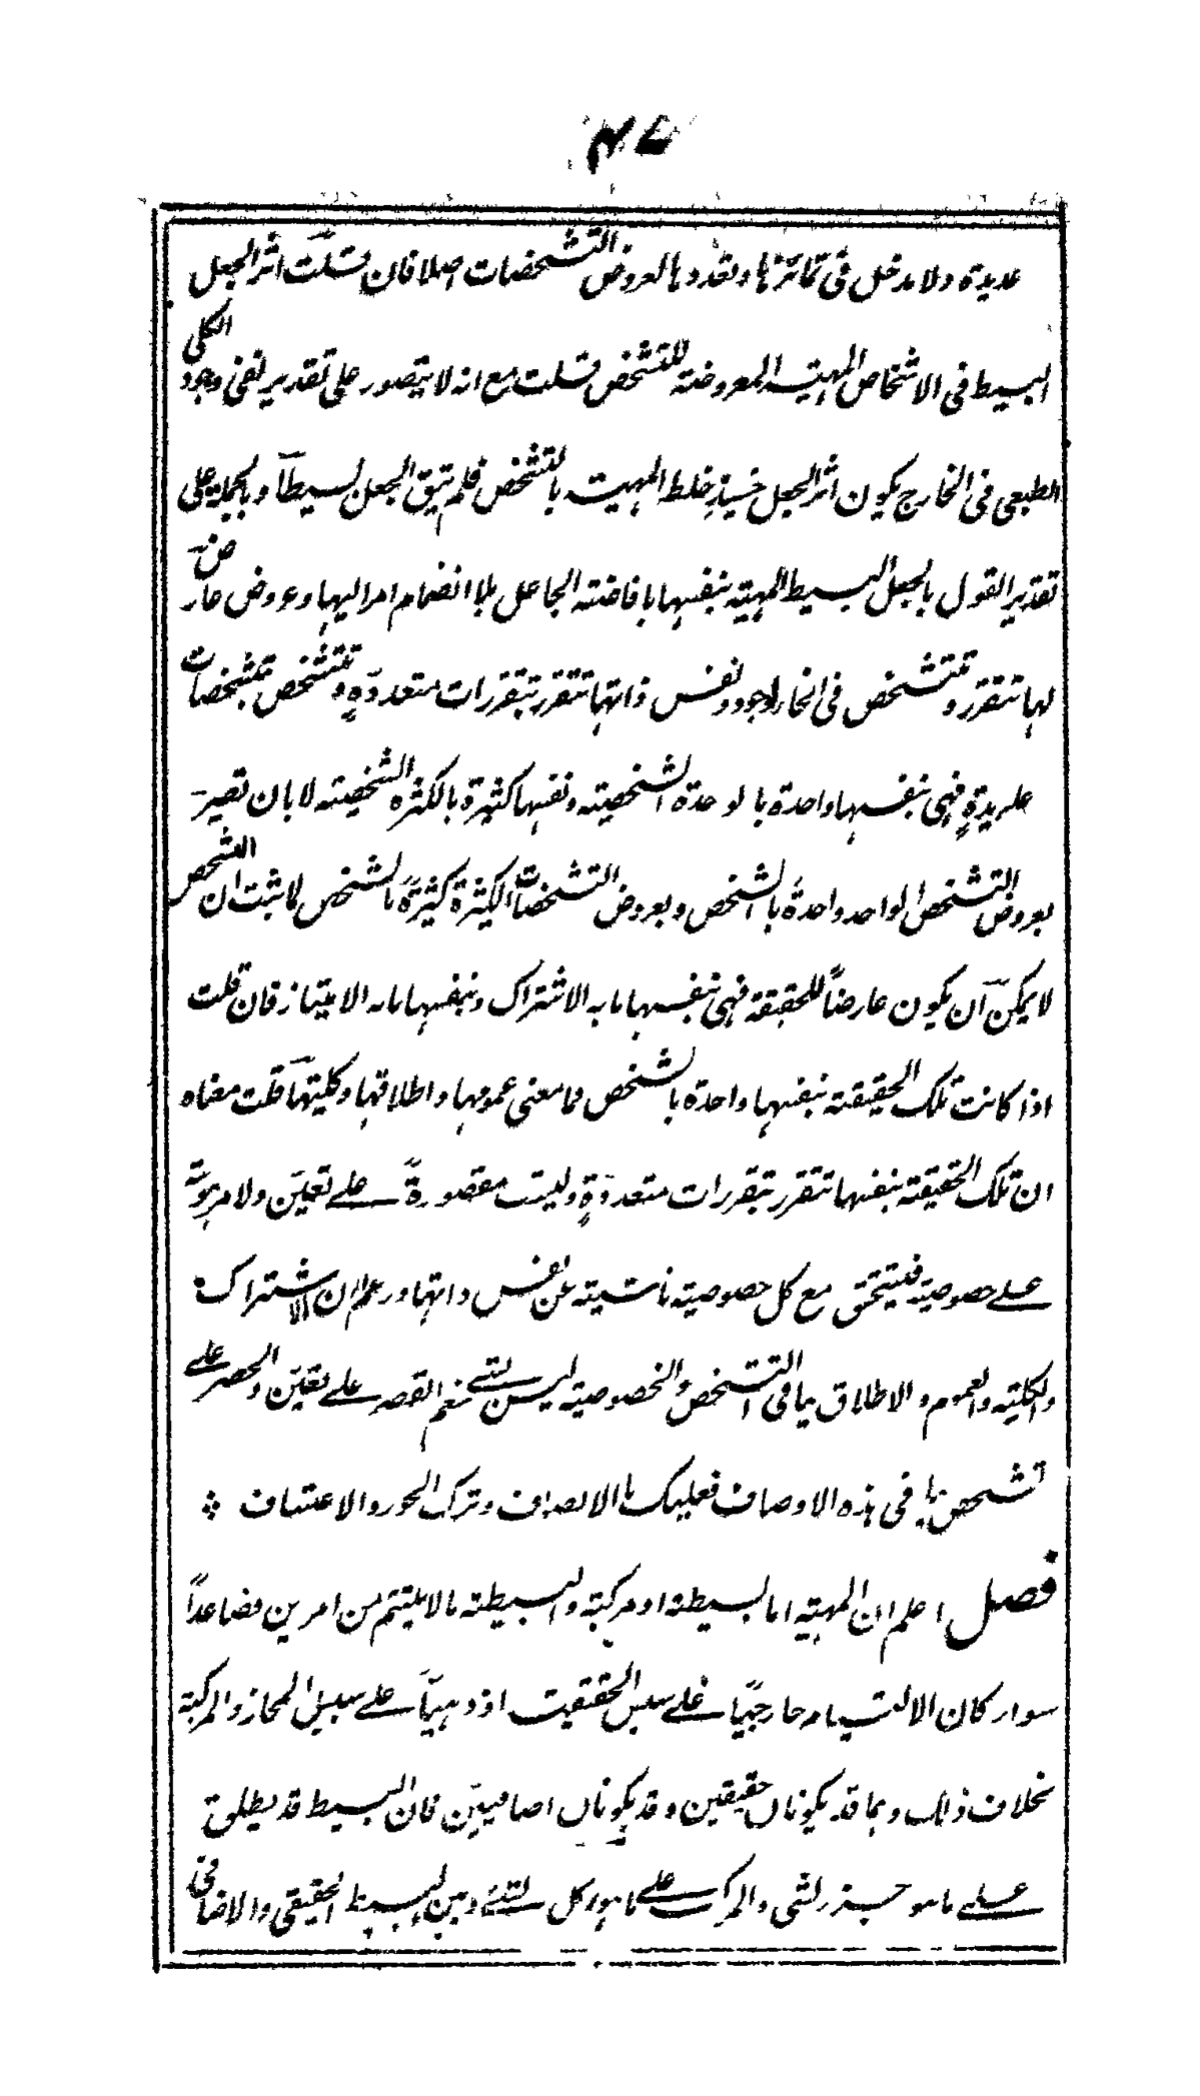 ۴۵
عديدة ولا مدخل فى تمائزها وتعددها لعروض التشخصات اصلا فان قلت اثر الجعل
البسيط فى الاشخاص المهية المعروضة للتشخص قلت مع انه لا يتصور على تقدير نفى وجود الكلى
الطبعى فى الخارج يكون اثر الجعل حينئذ خلط المهية بالتشخص فلم يبق الجعل بسيطاً وبالجملة على
تقدير القول بالجعل البسيط المهية بنفسها بافاضة الجاعل بلا انضمام امر اليها وعروض عارض
لها تتقرر وتتشخص فى انحاء الوجود ونفس ذاتها تتقرر بتقررات متعددة وتتشخص بتشخصات
عديدة فهى بنفسها واحدة بالوحدة الشخصية وبنفسها كثيرة بالكثرة الشخصية لا بان تصير
بعروض التشخص الواحد واحدة بالشخص وبعروض التشخصات الكثيرة كثيرة بالشخص لما ثبت ان الشخص
لا يمكن ان يكون عارضاً للحقيقة فهى بنفسها ما به الاشتراك وبنفسها ما به الامتياز فان قلت
اذا كانت تلك الحقيقة بنفسها واحدة بالشخص فما معنى عمومها واطلاقها وكليتها قلت معناه
ان تلك الحقيقة بنفسها تتقرر بتقررات متعددة وليست مقصورة على تعين ولا مرهونة
على خصوصية فيتحقق مع كل خصوصية ناشية عن نفس ذاتها وزعم ان الاشتراك
والكلية والعموم والاطلاق ينافى التشخص والخصوصية ليس بشئ نعم القصر على تعين والحصر على
تشخص ينافى هذه الاوصاف فعليك بالانصاف وترك الجور والاعتساف ۞
فصل اعلم ان المهية اما بسيطة او مركبة والبسيطة ما لا يلتئم من امرين فصاعداً
سواء كان الالتيام خارجياً على سبيل الحقيقت او ذهنياً على سبيل المجاز والمركبة
بخلاف ذلك وهما قد يكونان حقيقين وقد يكونان اضافيين فان البسيط قد يطلق
على ما هو جزء لشى والمركب على ما هو كل لشئ وبين البسيط الحقيقى والاضافى